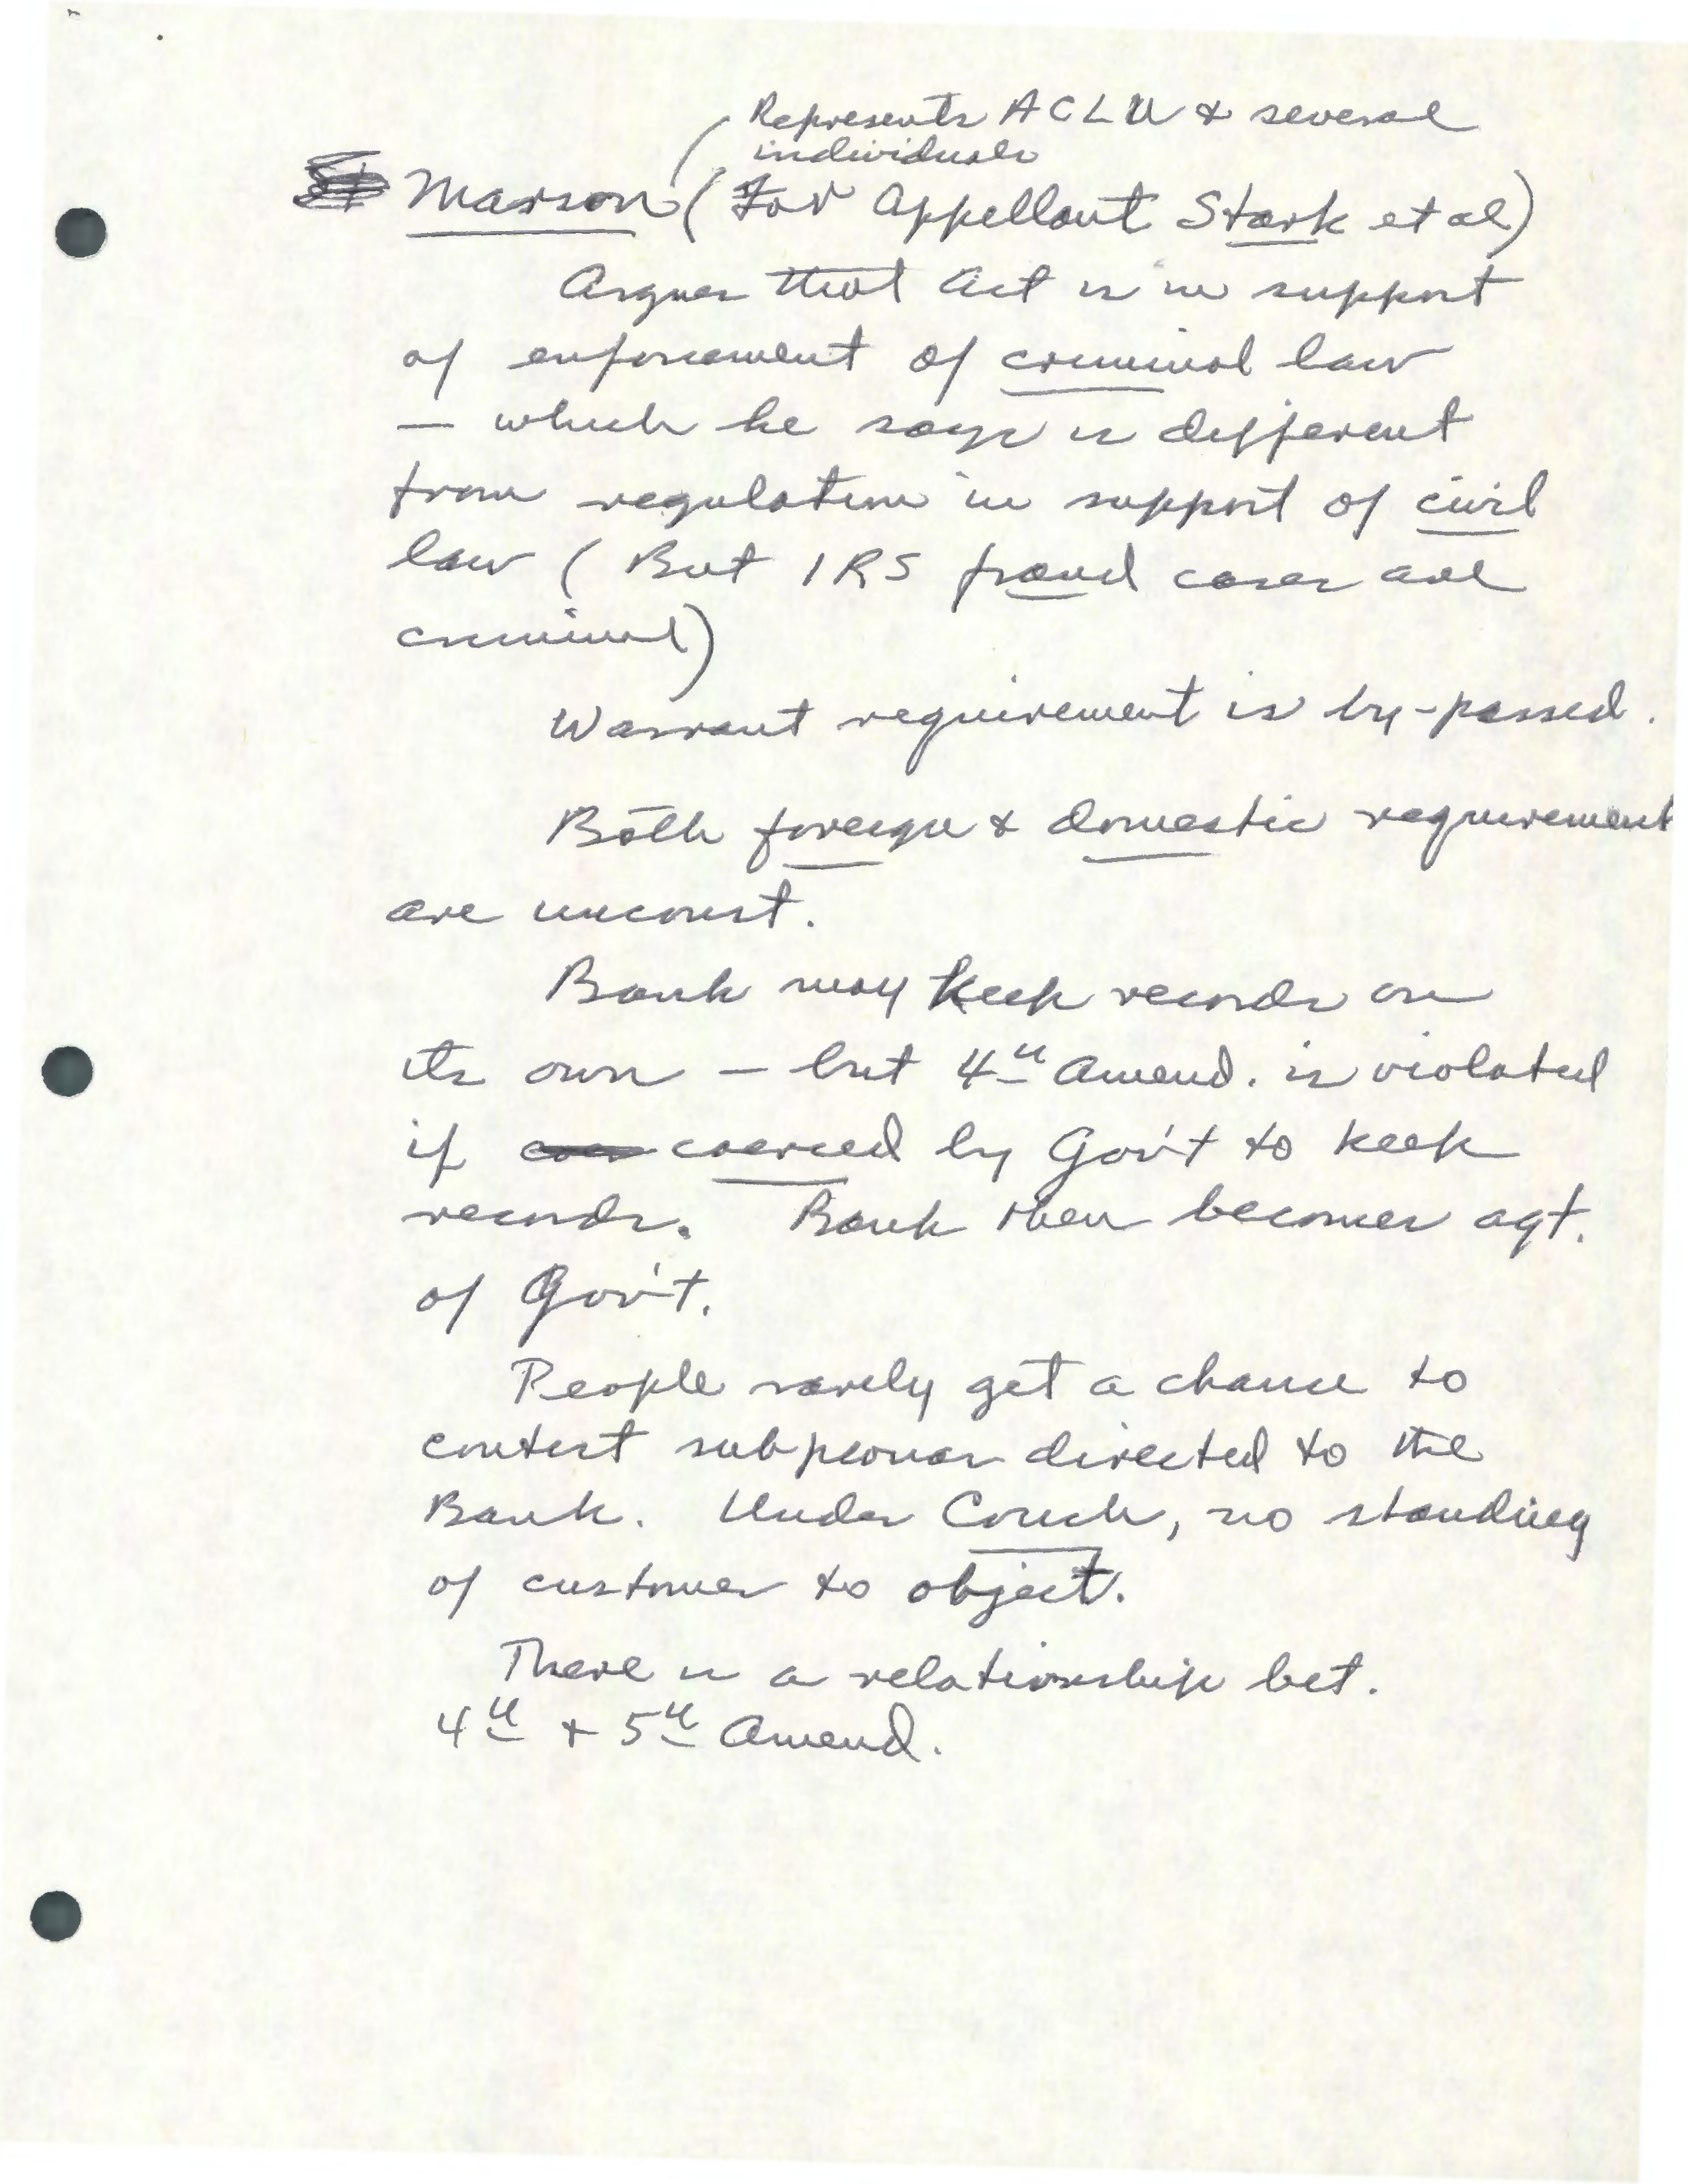 Represents ACLU & several
individuals
Marson (For Appellant Stark et al)
Argues that Act is in support
of enforcement of criminal law
— which he says is different
from regulation in support of civil
law ( But IRS fraud cases are
criminal)
Warrant requirement is by-passed.
Both foreign & domestic requirement
are unconst.
Bank may keep records on
its own — but 4th Amend. is violated
if coerced by Gov't to keep
records. Bank then becomes agt.
of Gov't.
People rarely get a chance to
contest subpeonas directed to the
Bank. Under Couch, no standing
of customer to object.
There is a relationship bet.
4th & 5th Amend.